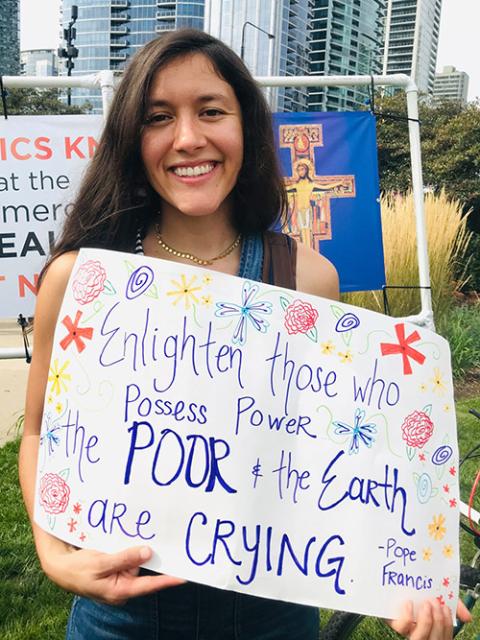 ICS KN
at the
merg
EAL
T N
Enlighten those who
Possess Power
the POOR & the Earth
are CRYING.
-Pope
Francis